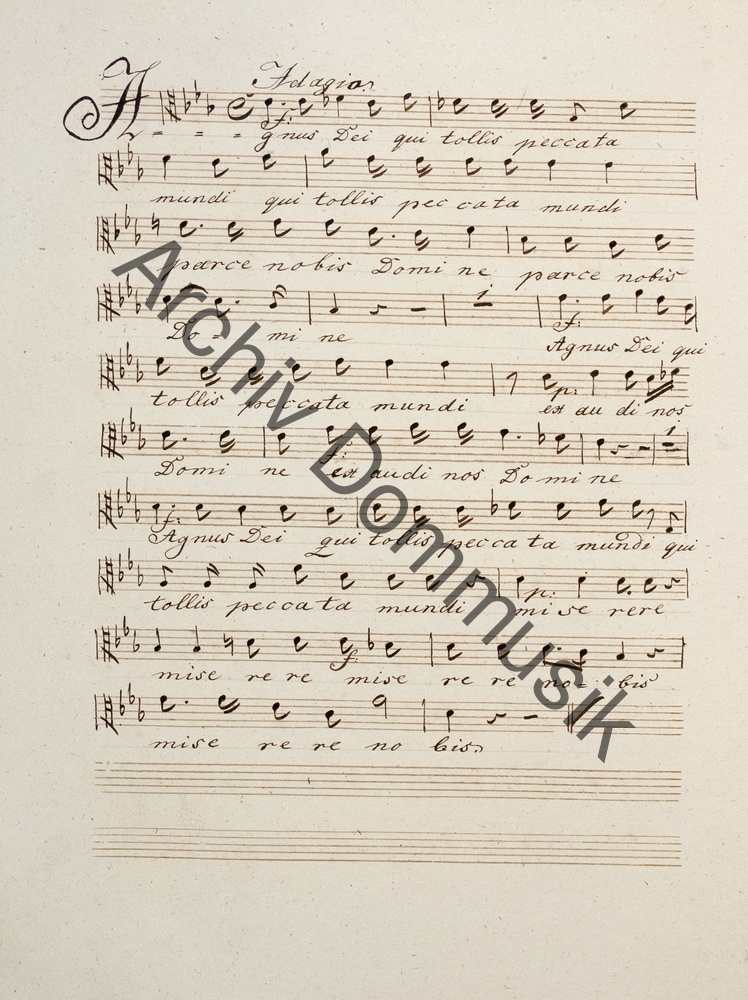 Adagio
A - - - gnus Dei qui tollis peccata
f:
mundi qui tollis pec ca ta mundi
parce nobis Domi ne parce nobis
Do - mi ne Agnus Dei qui
1
f:
tollis peccata mundi ex au di nos
p:
Domi ne ex audi nos Do mi ne
f:
1
Agnus Dei qui tollis pec ca ta mundi qui
f:
tollis pec ca ta mundi mi se rere
p:
mise re re mise re re no - bis
f
mise re re no bis
Archiv Dommusik